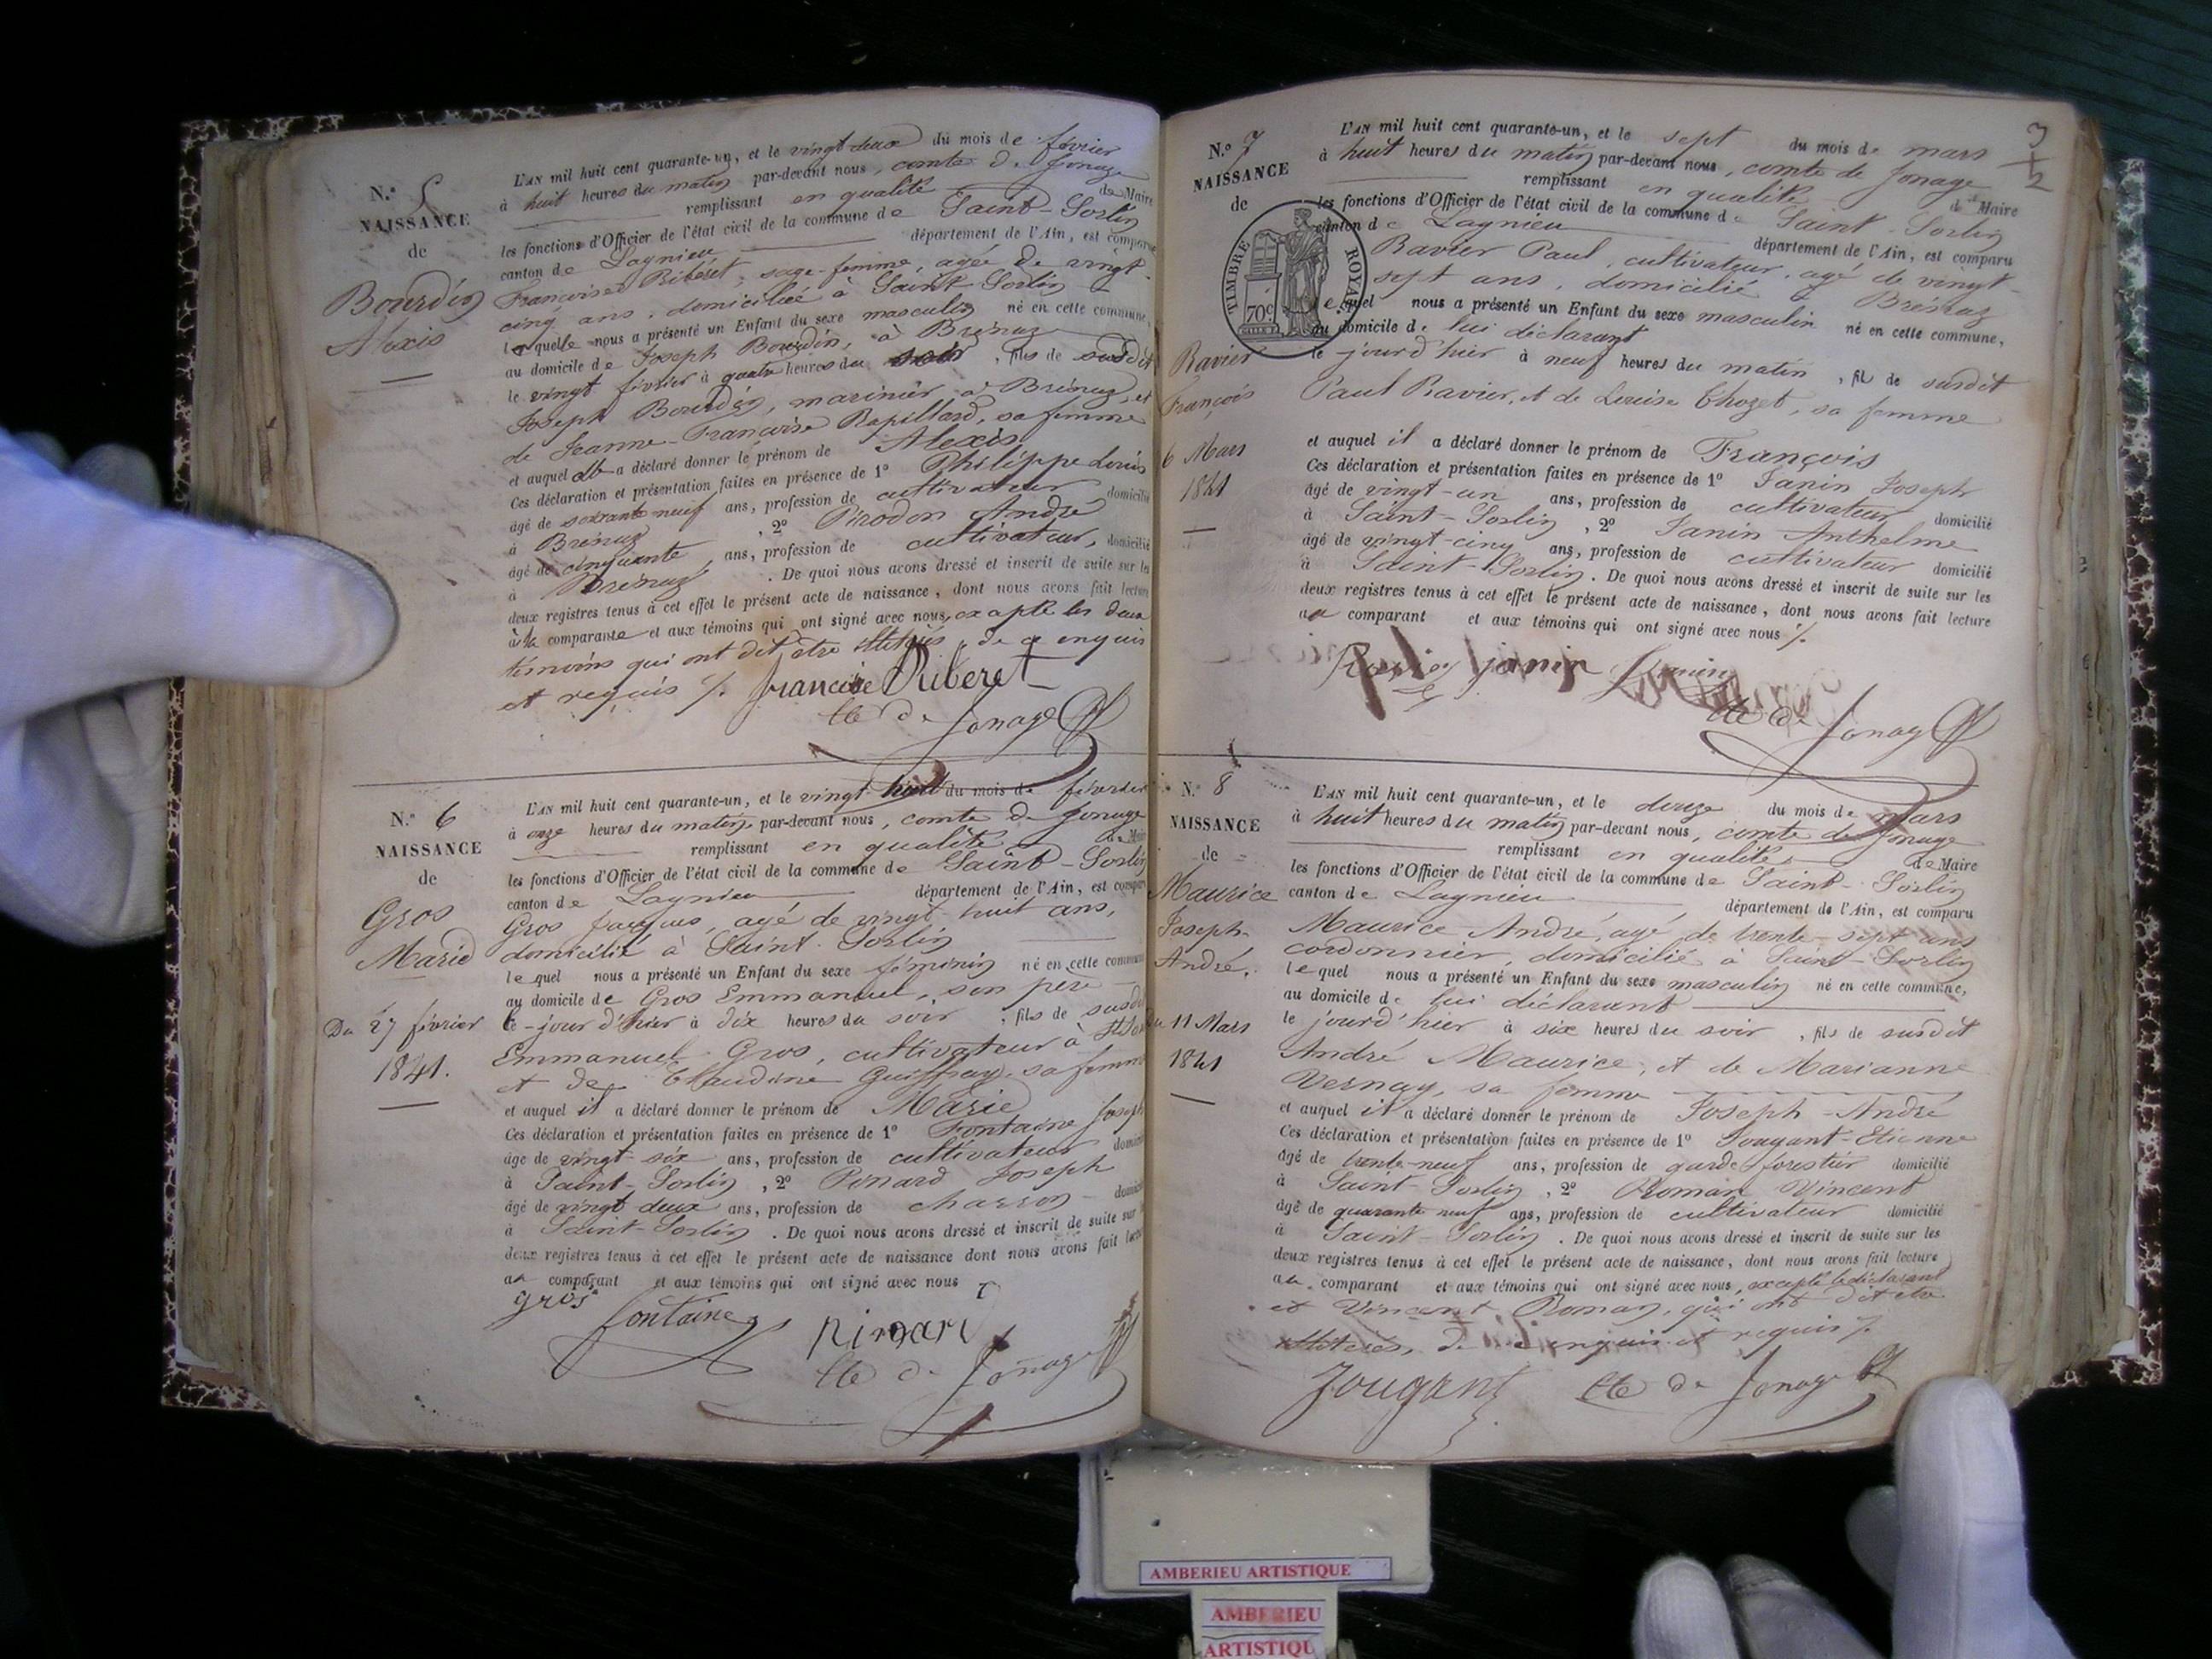 N.° 5
NAISSANCE
de
Bourdin
Alexis
L'AN mil huit cent quarante-un, et le vingt deux du mois de février
à huit heures du matin par-devant nous, comte de Jonage
remplissant en qualité de Maire
les fonctions d'Officier de l'état civil de la commune de Saint-Sorlin
canton de Lagnieu département de l'Ain, est comparue
Françoise Ribéret, sage-femme, agée de vingt-
cinq ans, domiciliée à Saint Sorlin
laquelle nous a présenté un Enfant du sexe masculin né en cette commune,
au domicile de Joseph Bourdin, à Brénaz
le vingt février à quatre heures du soir, fils de susdit
Joseph Bourdin, marinier à Brénaz, et
de Jeanne-Françoise Rapillard, sa femme
et auquel a déclaré donner le prénom de Alexis
Ces déclaration et présentation faites en présence de 1° Philippe Louis
âgé de soixante neuf ans, profession de cultivateur domicilié
à Brénaz, 2° Pirodon André
âgé de cinquante, ans, profession de cultivateur, domicilié
à Brénaz. De quoi nous avons dressé et inscrit de suite sur les
deux registres tenus à cet effet le présent acte de naissance, dont nous avons fait lecture
à la comparante et aux témoins qui ont signé avec nous, excepté les deux
témoins qui ont dit être illitérés, de ce enquis
et requis
Francoise Riberet
Cte de Jonage
N.° 6
NAISSANCE
de
Gros
Marie
Du 27 février
1841.
L'AN mil huit cent quarante-un, et le vingt huit du mois de février
à onze heures du matin par-devant nous, comte de Jonage
remplissant en qualité de Maire
les fonctions d'Officier de l'état civil de la commune de Saint-Sorlin
canton de Lagnieu département de l'Ain, est comparu
Gros Jacques, agé de vingt-huit ans,
domicilié à Saint-Sorlin
lequel nous a présenté un Enfant du sexe féminin né en cette commune
au domicile de Gros Emmanuel, son père
le jour d'hier à dix heures du soir, fils de susdit
Emmanuel Gros, cultivateur à St Sorlin
et de Claudine Guiffray, sa femme
et auquel il a déclaré donner le prénom de Marie
Ces déclaration et présentation faites en présence de 1° Fontaine Joseph
âgé de vingt-six ans, profession de cultivateur domicilié
à Saint-Sorlin, 2° Pinard Joseph
âgé de vingt deux ans, profession de charron domicilié
à Saint-Sorlin. De quoi nous avons dressé et inscrit de suite sur
deux registres tenus à cet effet le présent acte de naissance dont nous avons fait lecture
au comparant et aux témoins qui ont signé avec nous
gros
fontaine
pinard
Cte de Jonage
3
1/2
N.° 7
NAISSANCE
de
TIMBRE ROYAL
70c
Ravier
François
6 Mars
1841
L'AN mil huit cent quarante-un, et le sept du mois de mars
à huit heures du matin par-devant nous, comte de Jonage
remplissant en qualité de Maire
les fonctions d'Officier de l'état civil de la commune de Saint-Sorlin
canton de Lagnieu département de l'Ain, est comparu
Ravier Paul, cultivateur, agé de vingt-
sept ans, domicilié à Brénaz
lequel nous a présenté un Enfant du sexe masculin né en cette commune,
au domicile de lui déclarant
le jourd'hier à neuf heures du matin, fils de susdit
Paul Ravier, et de Louise Chozet, sa femme
et auquel il a déclaré donner le prénom de François
Ces déclaration et présentation faites en présence de 1° Janin Joseph
âgé de vingt-un ans, profession de cultivateur domicilié
à Saint-Sorlin, 2° Janin Anthelme
âgé de vingt-cinq ans, profession de cultivateur domicilié
à Saint-Sorlin. De quoi nous avons dressé et inscrit de suite sur les
deux registres tenus à cet effet le présent acte de naissance, dont nous avons fait lecture
au comparant et aux témoins qui ont signé avec nous
Ravier janin Janin
Cte de Jonage
N.° 8
NAISSANCE
de
Maurice
Joseph-
André.
Du 11 Mars
1841
L'AN mil huit cent quarante-un, et le douze du mois de mars
à huit heures du matin par-devant nous, comte de Jonage
remplissant en qualité de Maire
les fonctions d'Officier de l'état civil de la commune de Saint-Sorlin
canton de Lagnieu département de l'Ain, est comparu
Maurice André, agé de trente-sept ans
cordonnier, domicilié à Saint-Sorlin
lequel nous a présenté un Enfant du sexe masculin né en cette commune,
au domicile de lui déclarant
le jourd'hier à six heures du soir, fils de susdit
André Maurice, et de Marianne
Vernay, sa femme
et auquel il a déclaré donner le prénom de Joseph-André
Ces déclaration et présentation faites en présence de 1° Jougant-Etienne
âgé de trente-neuf ans, profession de garde forestier domicilié
à Saint-Sorlin, 2° Roman Vincent
âgé de quarante neuf ans, profession de cultivateur domicilié
à Saint-Sorlin. De quoi nous avons dressé et inscrit de suite sur les
deux registres tenus à cet effet le présent acte de naissance, dont nous avons fait lecture
au comparant et aux témoins qui ont signé avec nous, excepté le déclarant
et Vincent Roman, qui ont dit être
illitérés, de ce enquis et requis
Jougant Cte de Jonage
AMBERIEU ARTISTIQUE
AMBERIEU
ARTISTIQU